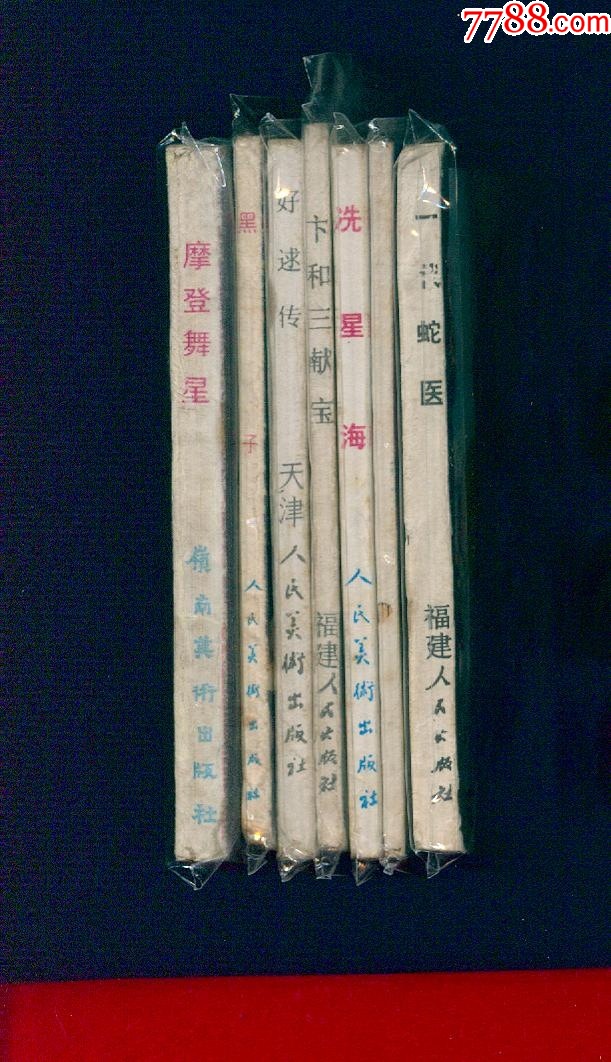 7788.com
摩登舞星
嶺南美術出版社
黑子
人民美術出版社
好逑传
天津人民美術出版社
卞和三献宝
福建人民出版社
冼星海
人民美術出版社
一代蛇医
福建人民出版社